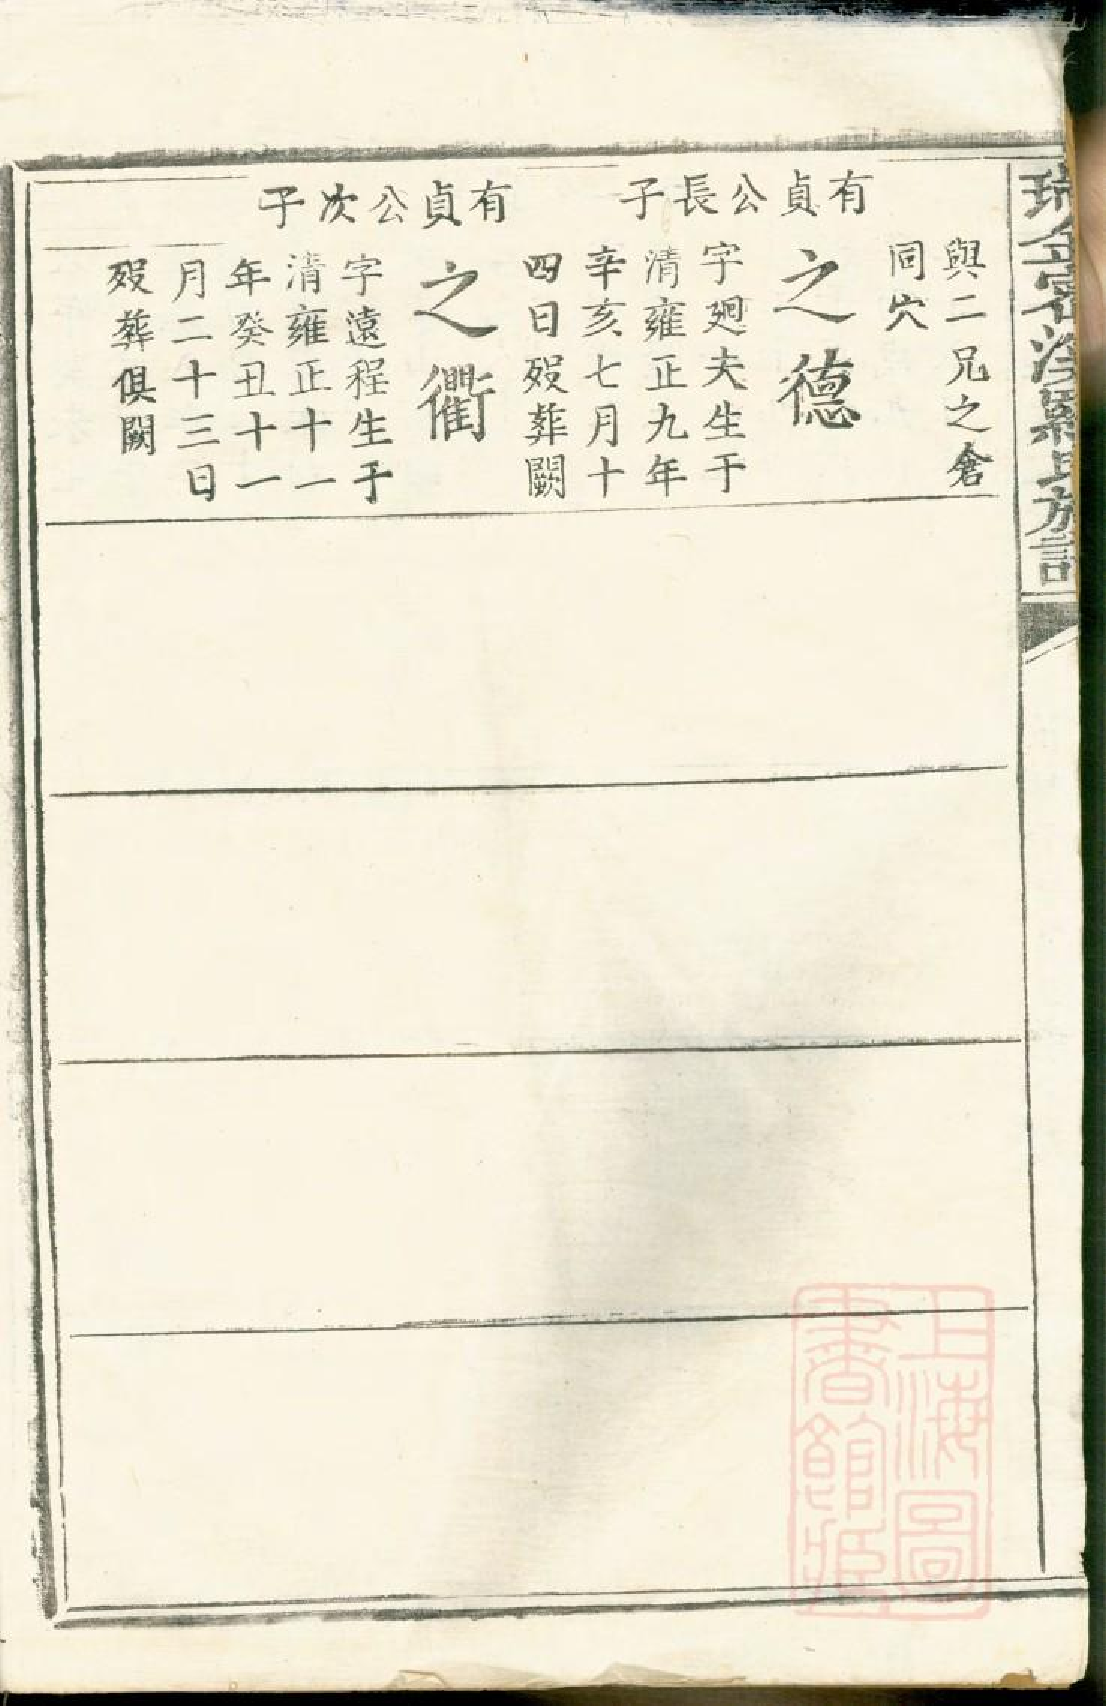 瑞金密溪羅氏族譜
與二兄之倉
同穴
有貞公長子
之德
字廻夫生于
清雍正九年
辛亥七月十
四日歿葬闕
有貞公次子
之衢
字遠程生于
清雍正十一
年癸丑十一
月二十三日
歿葬俱闕
上海圖
書館藏